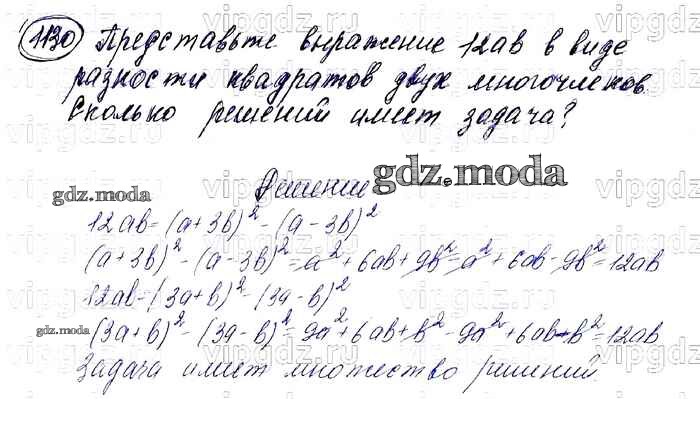 1130 Представьте выражение 12ab в виде
разности квадратов двух многочленов.
Сколько решений имеет задача?
Решение
gdz.moda
gdz.moda
12ab = (a+3b)² - (a-3b)²
(a+3b)² - (a-3b)² = a² + 6ab + 9b² - a² + 6ab - 9b² = 12ab
12ab = (3a+b)² - (3a-b)²
gdz.moda
(3a+b)² - (3a-b)² = 9a² + 6ab + b² - 9a² + 6ab - b² = 12ab
Задача имеет множество решений.
vipgdz